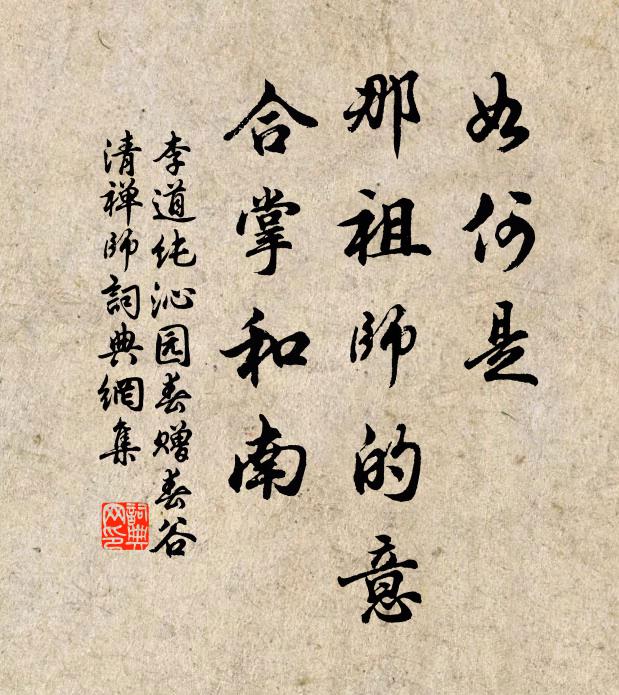 如何是
那祖師的意
合掌和南
李道纯沁园春赠春谷
清禅師詞典網集
詞典
网印